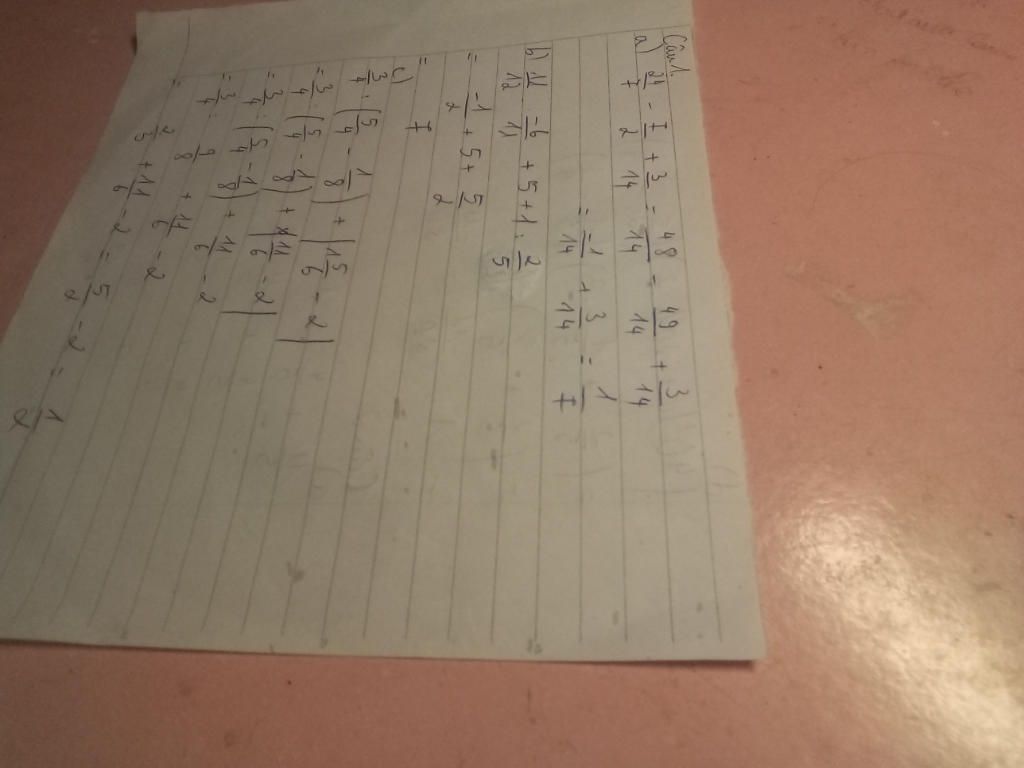 Câu 1.
a) 24/7 - 7/2 + 3/14 = 48/14 = 49/14 + 3/14
= -1/14 + 3/14 = 1/7
b) 11/12 . -6/11 + 5 + 1 : 2/5
= -1/2 + 5 + 5/2
= 7
c)
3/4 : (5/4 - 1/8) + |1 5/6 - 2|
= 3/4 : (5/4 - 1/8) + |11/6 - 2|
= 3/4 : (5/4 - 1/8) + 11/6 - 2
= 3/4 : 9/8 + 11/6 - 2
= 2/3 + 11/6 - 2 = 5/2 - 2 = 1/2